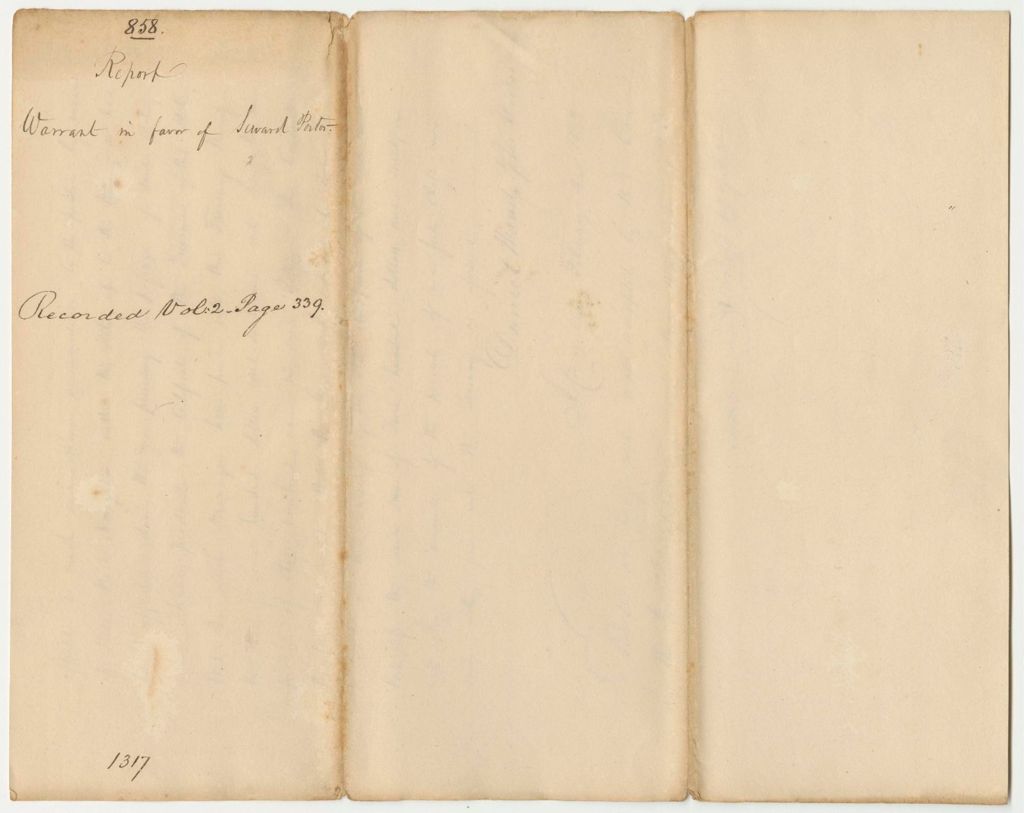 858.
Report
Warrant in favor of Seward Porter
Recorded Vol: 2 - Page 339.
1317